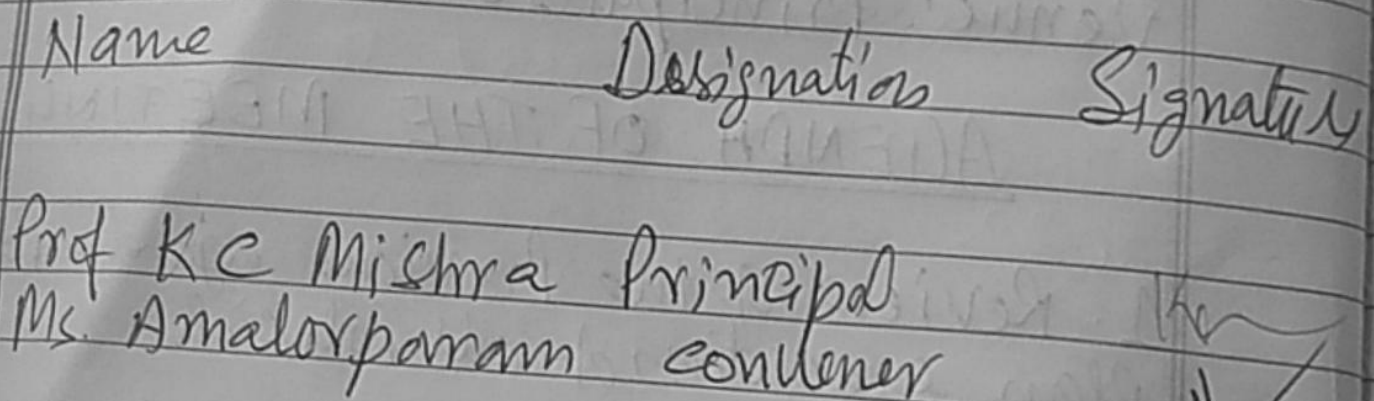 Name Designation Signature
Prof K C Mishra Principal
Ms. Amalorpavam convener